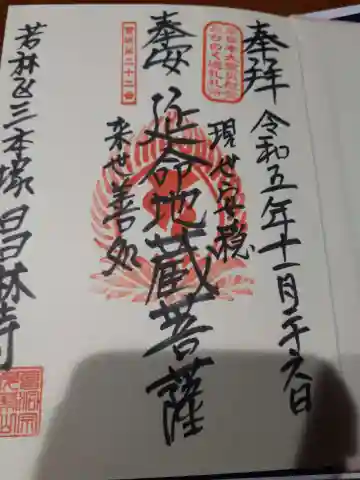 奉拝
令和五年十一月二十六日
現世安穏
奉安
延命地蔵菩薩
来世善処
若林区三本塚
昌林寺